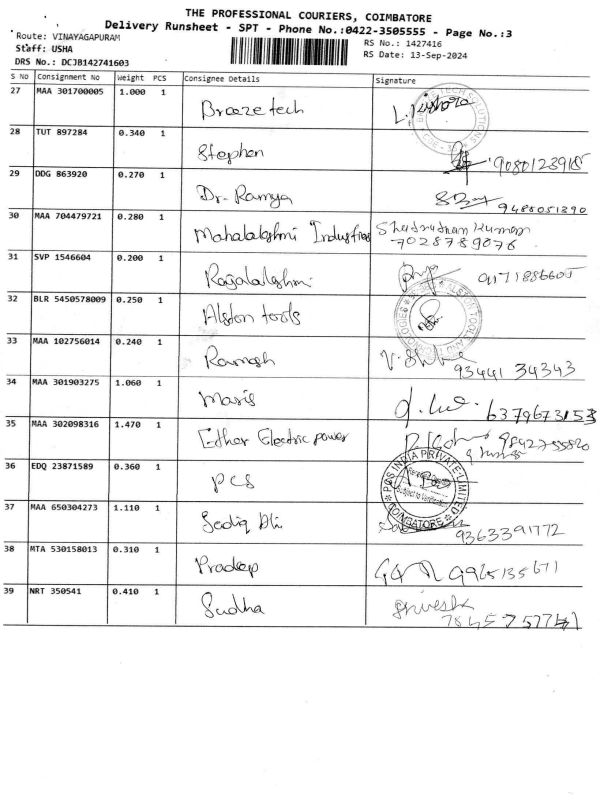 THE PROFESSIONAL COURIERS, COIMBATORE
Delivery Runsheet - SPT - Phone No.:0422-3505555 - Page No.:3
Route: VINAYAGAPURAM
RS No.: 1427416
Staff: USHA
RS Date: 13-Sep-2024
DRS No.: DCJB142741603
S No Consignment No Weight PCS Consignee Details Signature
27 MAA 301700005 1.000 1 Breeze tech
28 TUT 897284 0.340 1 Stephen
29 DDG 863920 0.270 1 Dr. Ramya 9488051390
30 MAA 704479721 0.280 1 Mahalakshmi Industries
7028789076
31 SVP 1546604 0.200 1 Rajalakshmi
32 BLR 5450578009 0.250 1 Alston tools
33 MAA 102756014 0.240 1 Ramesh
93441 34343
34 MAA 301903275 1.060 1 Maris 6379673153
35 MAA 302098316 1.470 1 Ether Electric power
36 EDQ 23871589 0.360 1 PCS
PCS INDIA PRIVATE LIMITED
COIMBATORE
37 MAA 650304273 1.110 1 Sadiq Ali
9363391772
38 MTA 530158013 0.310 1 Pradeep 9965135671
39 NRT 350541 0.410 1 Sudha